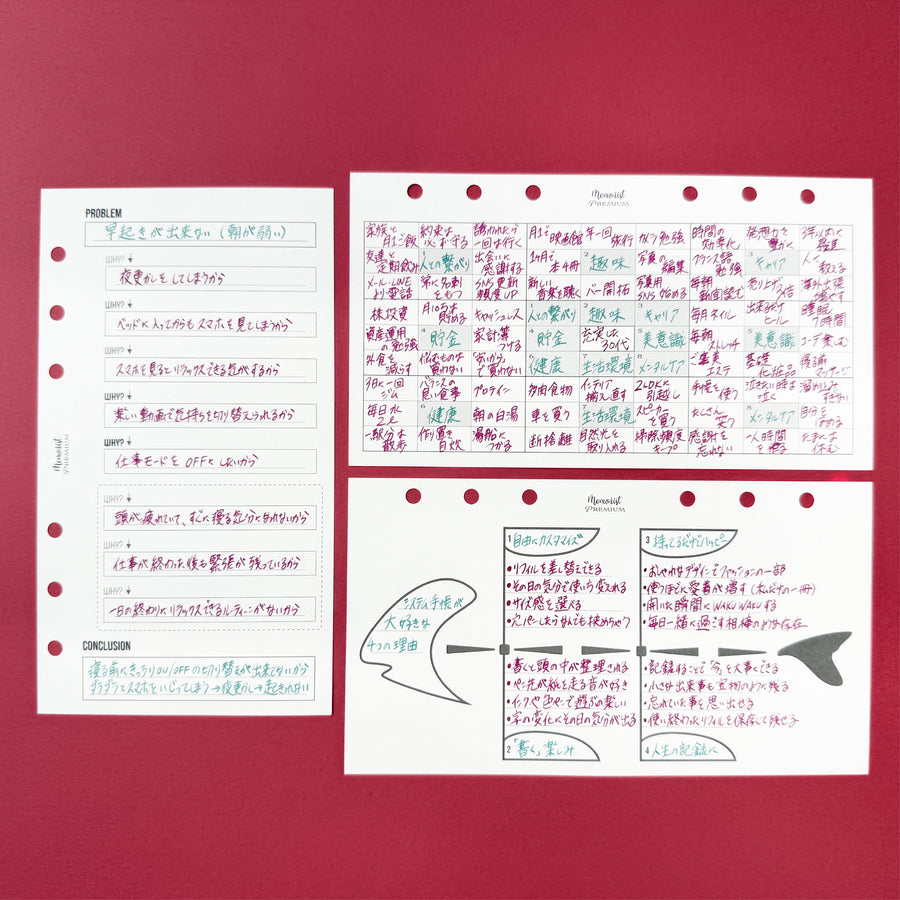 PROBLEM
早起きが出来ない(朝が弱い)
WHY?
夜更かしをしてしまうから
WHY?
ベッドに入ってからもスマホを見てしまうから
WHY?
スマホを見るとリラックスできる気がするから
WHY?
楽しい動画で気持ちを切り替えられるから
WHY?
仕事モードをOFFにしたいから
WHY?
頭が疲れていて、すぐに寝る気分になれないから
WHY?
仕事が終わった後も緊張が残っているから
WHY?
一日の終わりにリラックスできるルーティーンがないから
CONCLUSION
寝る前にきっちりON/OFFの切り替えが出来てないから
ダラダラとスマホをいじってしまう→夜更かし→起きれない
Memorist
PREMIUM
Memorist
PREMIUM
家族と月1ご飯 約束は必ず守る 誘われたら一回は行く 月1で映画館 年一回旅行 カメラ勉強 時間の効率化 発想力を磨く 3年以内に
友達と定期飲み 人との繋がり 出会いに感謝する 1カ月で本4冊 2 趣味 写真の編集 フランス語勉強 3 キャリア 人に教える
メール・LINEより電話 常に笑顔をもつ SNS更新頻度UP 新しい音楽を聴く バー開拓 写真用SNS始める 毎朝新聞 売り上げ 海外出張増やす
株投資 月10万は貯める キャッシュレス 1 人との繋がり 2 趣味 3 キャリア 毎月ネイル 出来るだけヒール 睡眠7時間
資産運用の勉強 4 貯金 家計簿つける 4 貯金 充実した30代 5 美意識 毎朝ストレッチ 5 美意識 コーデ楽しむ
外食を減らす 似たものは買わない "安いから"で買わない 6 健康 7 生活環境 8 メンタルケア ご褒美エステ 基礎化粧品 寝る前マッサージ
3日に一回ジム バランスの良い食事 プロテイン 多肉食物 インテリア揃え直す 2LDKに引越し 手帳を使う 泣きたい時は泣く 溜め込みすぎない
毎日水2L 6 健康 朝の白湯 車を買う 7 生活環境 スピーカーを買う たくさん笑う 8 メンタルケア 自分をほめる
一駅分お散歩 作り置き自炊 湯船につかる 断捨離 自然光を取り入れる 掃除頻度キープ 感謝を忘れない 一人時間を作る たまには休む
Memorist
PREMIUM
システム手帳が
大好きな
4つの理由
1 自由にカスタマイズ
•リフィルを差し替えできる
•その日の気分で使い方変えれる
•サイズ感を選べる
•穴パンしたらなんでも挟めちゃう
3 持ってるだけでハッピー
•おしゃれなデザインでファッションの一部
•使うほどに愛着が増す(私だけの一冊)
•開いた瞬間にWAKUWAKUする
•毎日一緒に過ごす相棒のような存在
•書くと頭の中が整理される
•ペン先が紙を走る音が好き
•インクや色ペンで遊ぶの楽しい
•字の変化にその日の気分が出る
2 「書く」楽しみ
•記録することで"今"を大事にできる
•小さな出来事も宝物のように残る
•忘れていた事を思い出せる
•使い終わったリフィルを保存して残せる
4 人生の記録に